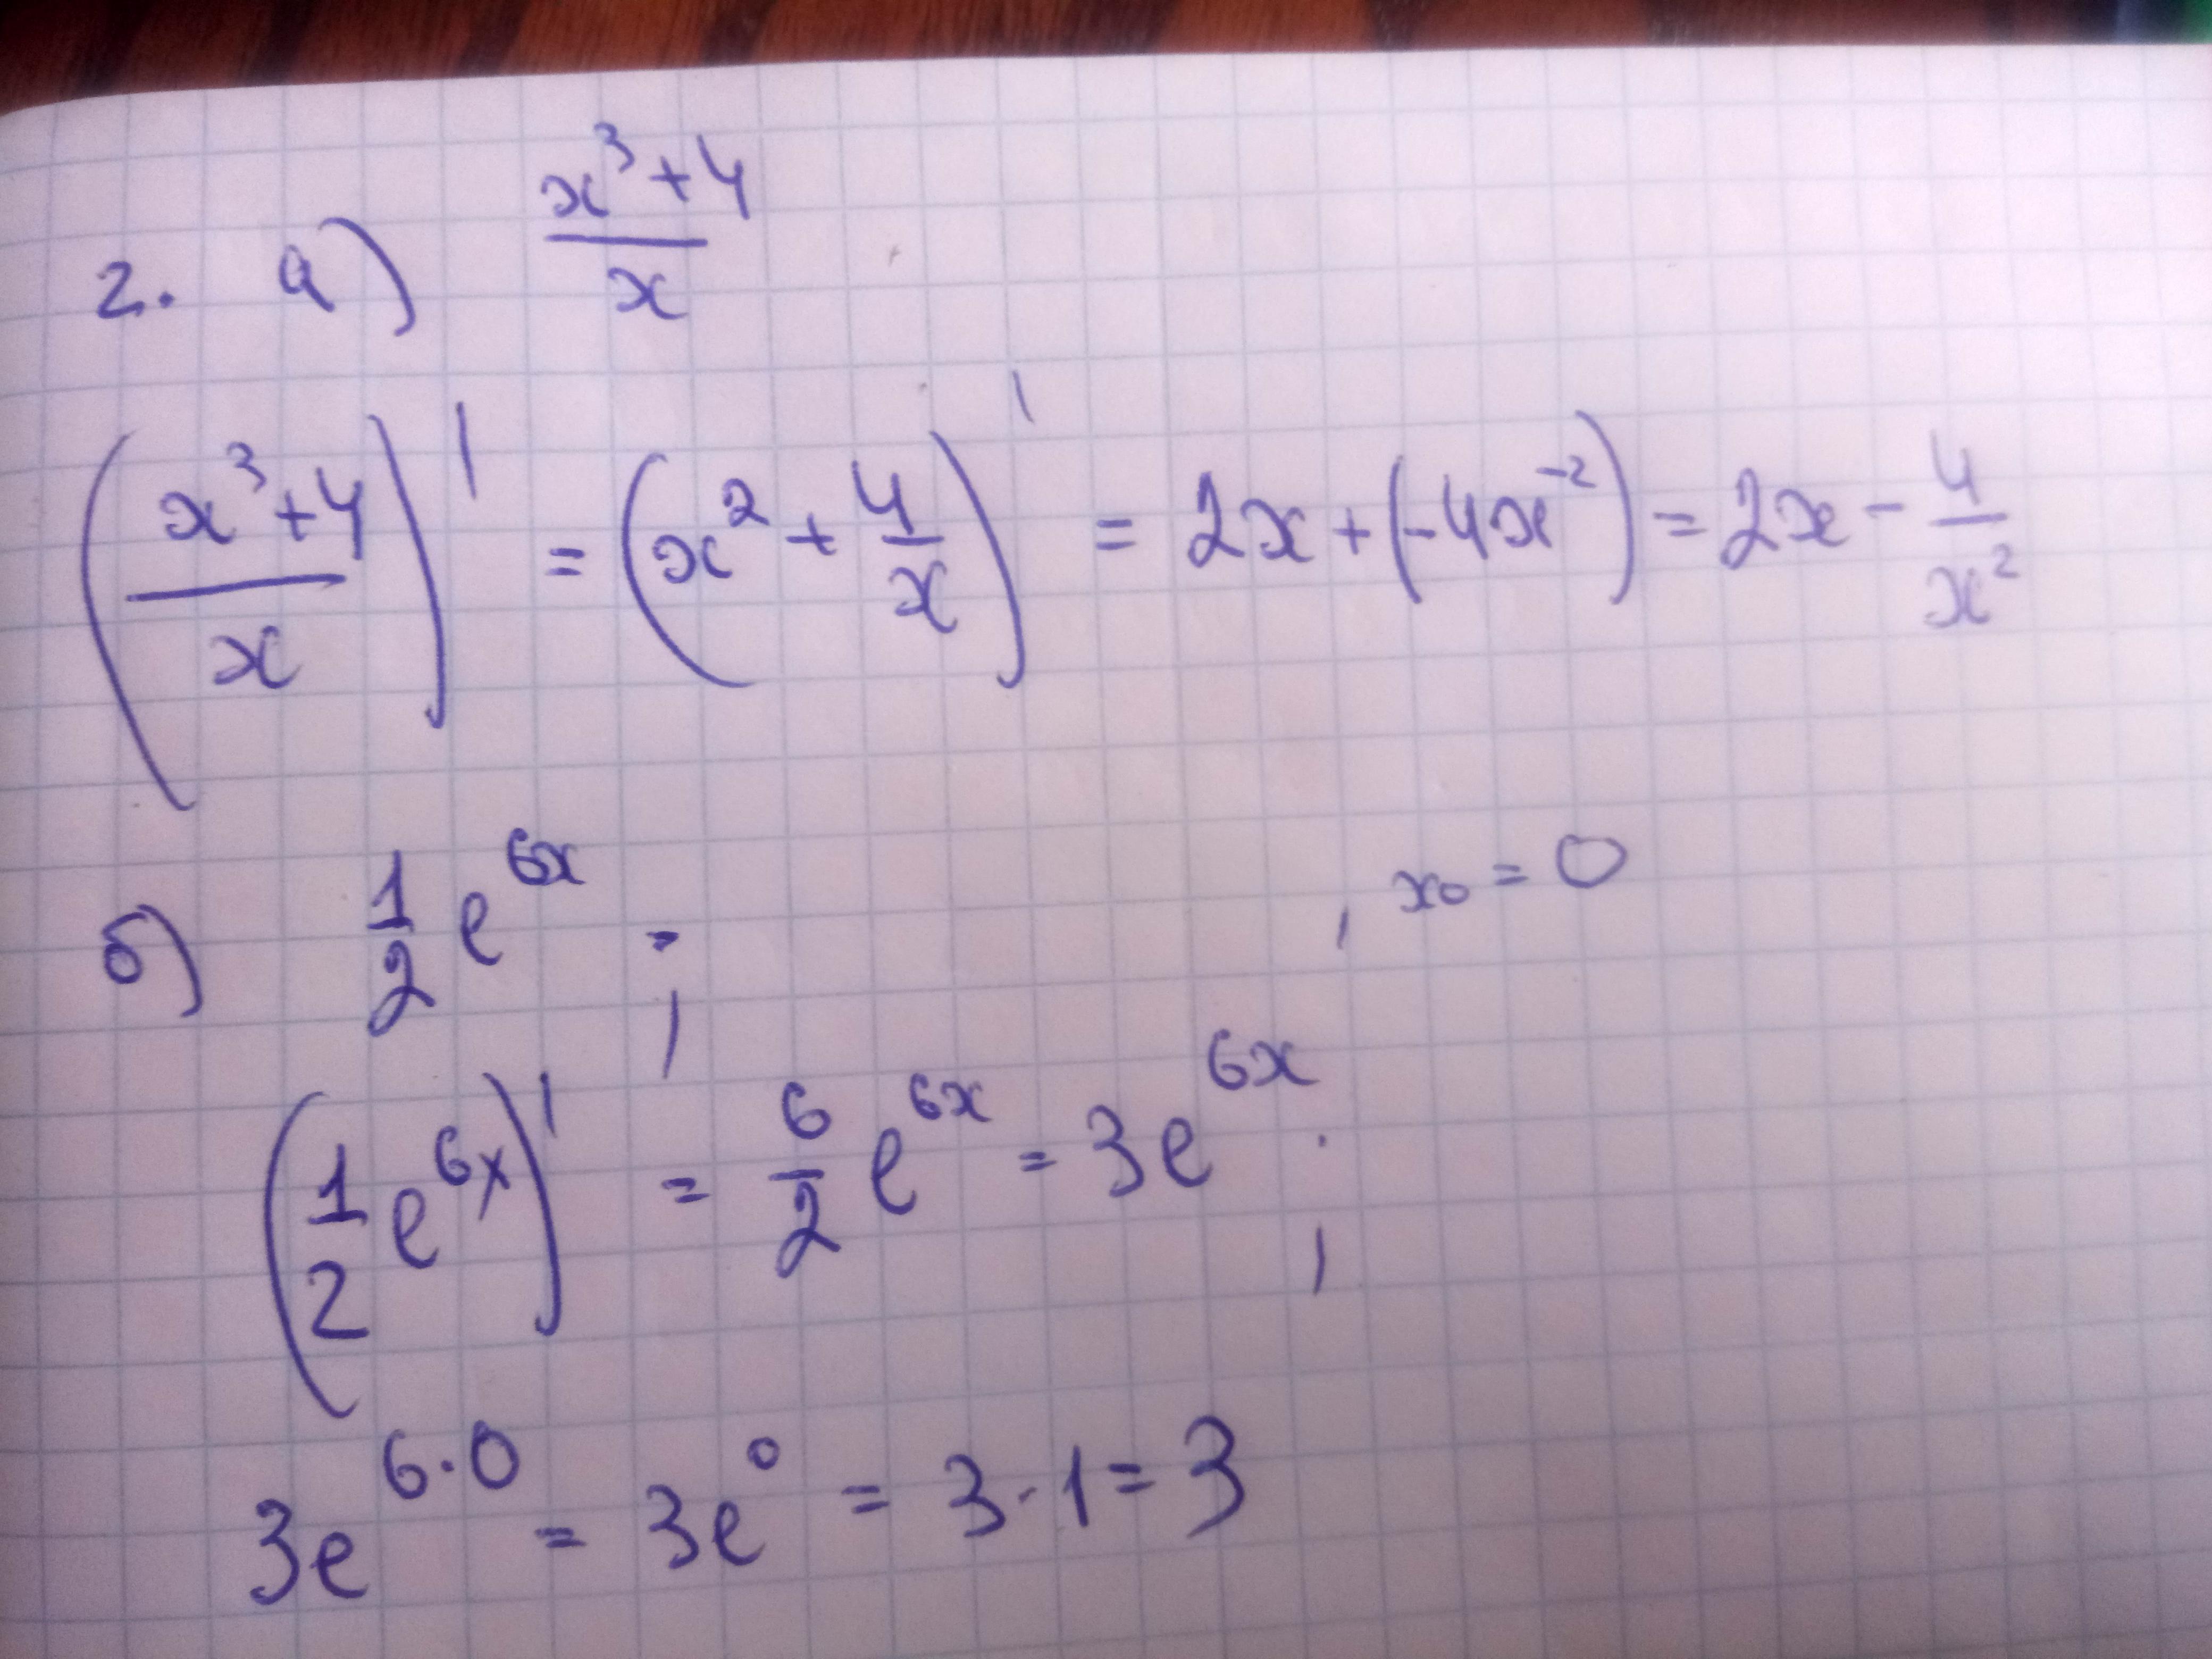 2. а) (x³+4)/x
((x³+4)/x)' = (x² + 4/x)' = 2x + (-4x⁻²) = 2x - 4/x²
б) 1/2 e^(6x) ; , x₀ = 0
(1/2 e^(6x))' = 6/2 e^(6x) = 3e^(6x) ;
3e^(6·0) = 3e⁰ = 3·1 = 3